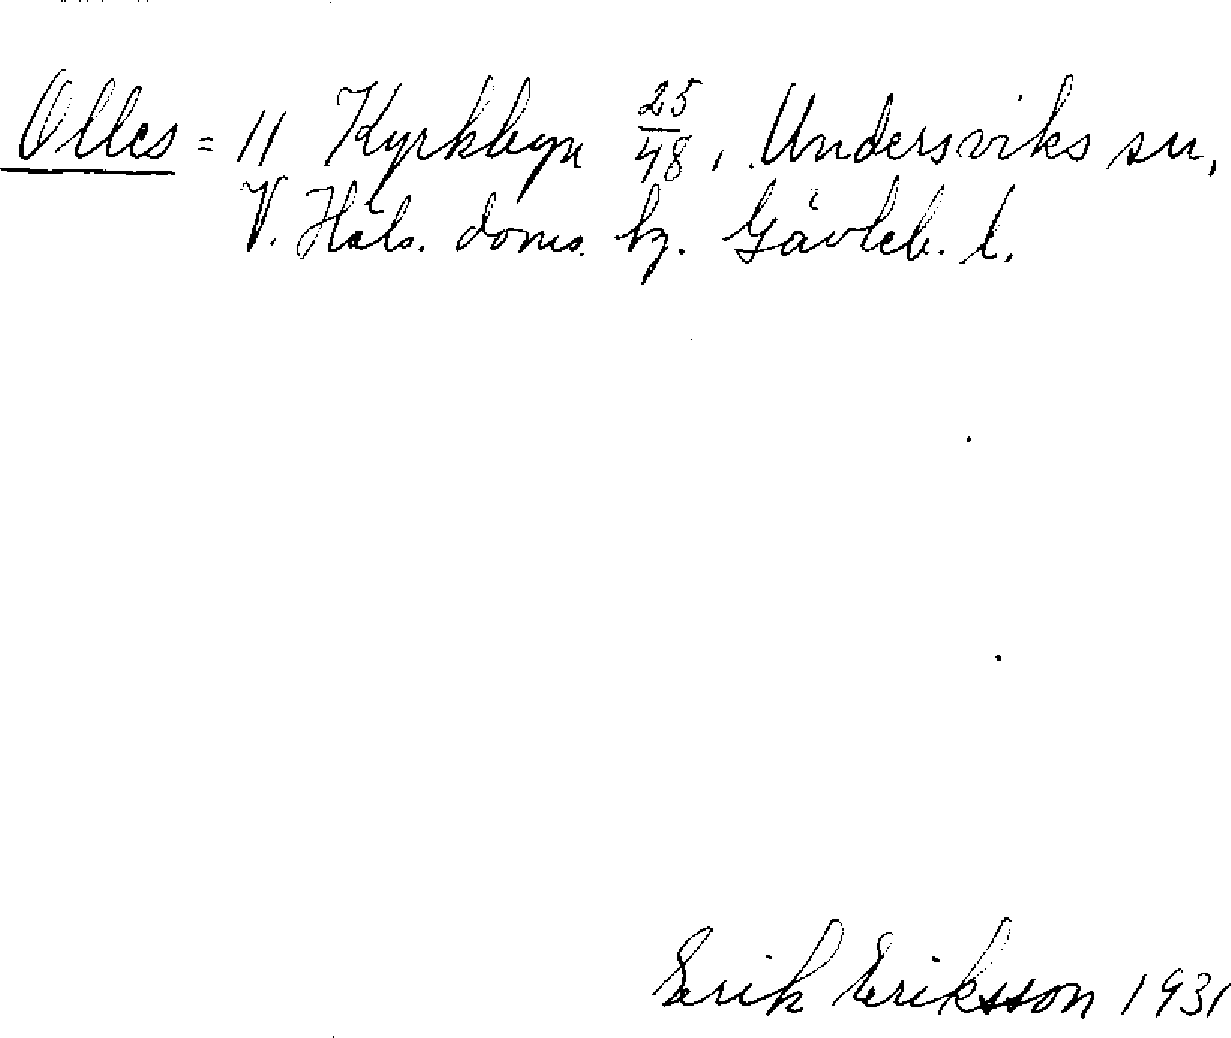 Olles = 11 Kyrkbyn 25/48, Undersviks sn,
V. Häls. doms. hz. Gävleb. l.
Erik Eriksson 1931